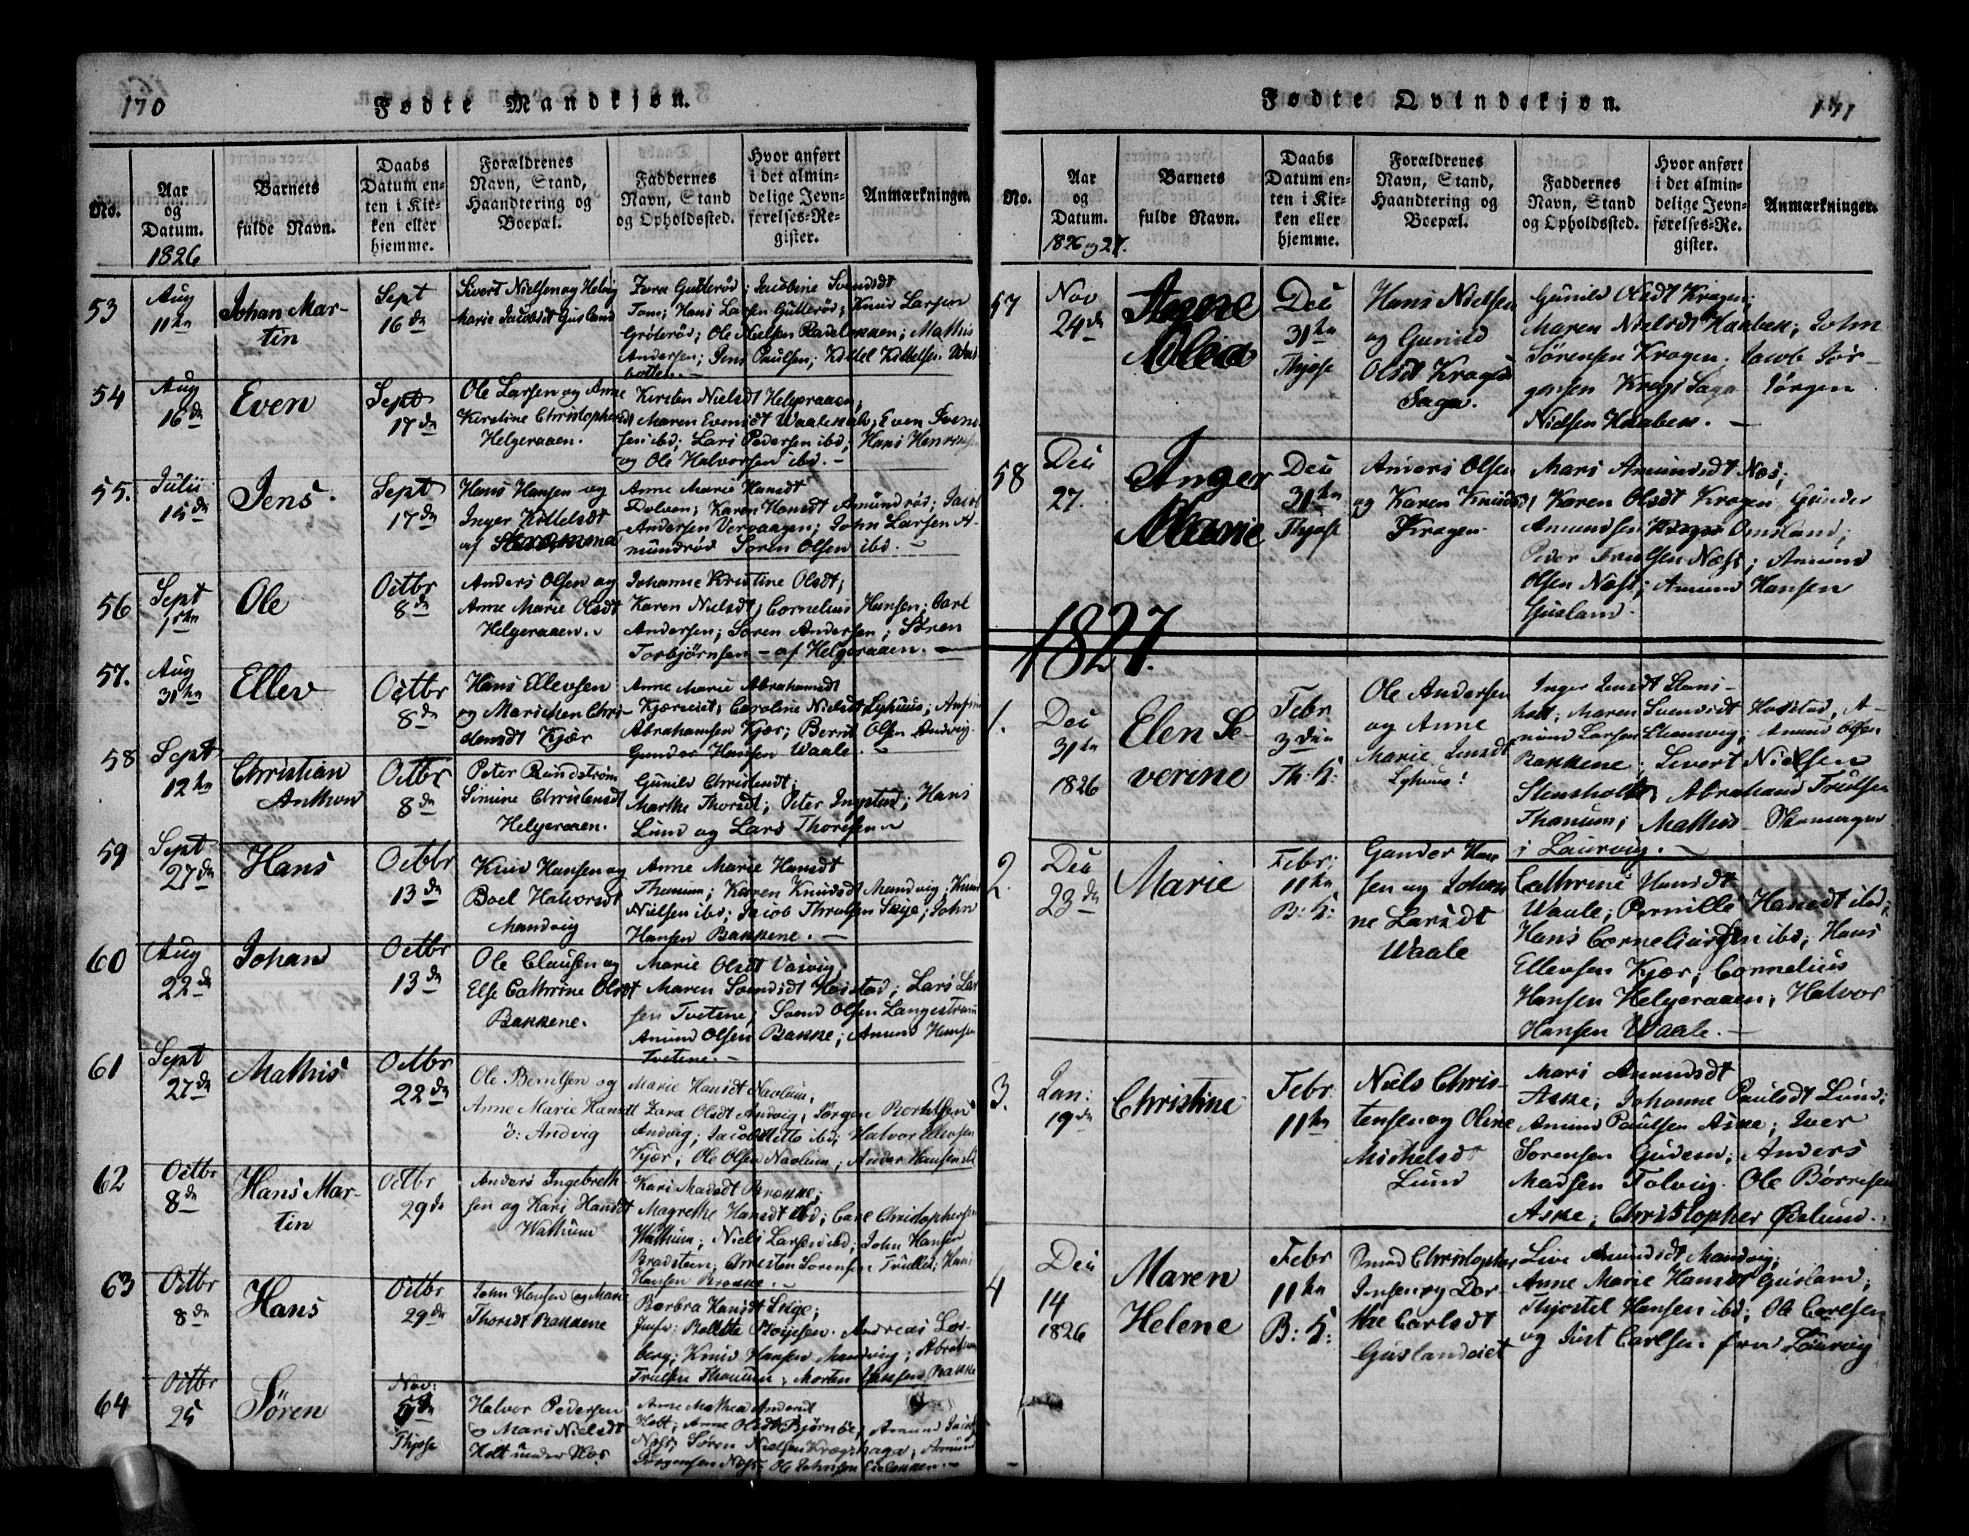 170
Fødte Mandkjøn.
No.
Aar
og
Datum.
1826
Barnets
fulde Navn.
Daabs
Datum en-
ten i Kir-
ken eller
hjemme.
Forældrenes
Navn, Stand,
Haandtering og
Boepæl.
Faddernes
Navn, Stand
og Opholdssted.
Hvor anført
i det almin-
delige Jevn-
førelses-Re-
gister.
Anmærkninger.
53
Aug
11te
Johan Mar-
tin
Sept
16de
Sivert Nielsen og Helvig
Marie Jacobsdt Gusland
Tom; Hans Larsen Gutterød; Knud Larsen
Andersen; Jens Paulsen; Kittel Kittelsen
54
Aug
16de
Even
Sept
17de
Ole Larsen og Anne
Kirstine Christophersdt
Helgeraaen.
Kirsten Nielsdt Helgeraaen;
Maren Evensdt
sen ibd; Lars Pedersen ibd; Hans
og Ole Halvorsen ibd. –
55.
Julii
15de
Jens.
Sept
17de
Hans Hansen og
Inger Kittelsdt
af
Anne Marie Hansdt
Dolven; Karen Hansdt Amundrød; Jacob
Andersen Vervaagen; John Larsen A-
mundrød Søren Olsen ibd. –
56
Sept
1ste
Ole
Octbr
8de
Anders Olsen og
Anne Marie Olsdt
Helgeraaen.
Johanne Kirstine Olsdt;
Karen Nielsdt; Cornelius Hansen; Carl
Andersen; Søren Andersen; Søren
Torbjørnsen – af Helgeraaen. –
57.
Aug
31te
Ellev
Octbr
8de
Hans Ellevsen
og Marichen Chri-
stensdt Kjær
Anne Marie Abrahamsdt
Kjæreiet; Caroline Nielsdt Lyhuus;
Abrahamsen Kjær; Bernt Olsen Andvig
Gunder Hansen Waale. –
58
Sept
12te
Christian
Anthon
Octbr
8de
Peter Rundstrøm
Simine Christensdt
Helgeraaen.
Gunild Christensdt;
Marthe Thorsdt; Peter Ingstad; Hans
Lund og Lars Thoresen
59
Sept
27de
Hans
Octbr
13de
Knud Hansen og
Boel Halvorsdt
Mandvig
Anne Marie Hansdt
Thanum; Karen Knudsdt Mandvig; Knud
Nielsen ibd; Jacob Thrulsen Skije; John
Hansen Bakkene. –
60
Aug
22de
Johan
Octbr
13de
Ole Clausen og
Else Cathrine Olsdt
Bakkene.
Marie Olsdt Vasvig;
Maren Svendsdt Havstad; Lars Lar-
sen Tvetene; Svend Olsen Langestrand
Amund Olsen Bakke; Amund Hansen
Tvetene. –
61
Sept
27de
Mathis
Octbr
22de
Ole Berntsen og
Anne Marie Hansdt
ø: Andvig
Marie Hansdt Naolum;
Zara Olsdt Andvig; Jørgen
Andvig; Jacob Ditto ibd; Halvor Ellevsen
Kjær; Ole Olsen Naolum; Ander Hansen ibd
62
Octbr
8de
Hans Mar-
tin
Octbr
29de
Anders Ingebreth-
sen og Kari Hansdt
Wathium
Kari Madsdt Brække;
Magrethe Hansdt ibd; Carl Christophersen
Wathum; Niels Larsen ibd; John Hansen
Hansen Brække. –
63
Octbr
8de
Hans
Octbr
29de
John Hansen og Marie
Thorsdt Bakkene
Barbra Hansdt Skije;
Jnfr: Bollette Boyesen. Andreas Lor-
berg; Knud Hansen Mandvig; Abraham
Trulsen Thanum; Morten Hansen Bakke
64
Octbr
25
Søren
Nov:
5de
Thjøse
Halvor Pedersen
og Mari Nielsdt
Holt under Næs
Anne Mathea Andersdt
Holt; Anne Olsdt Bjørnbø; Amund Jacobs
Næs; Søren Nielsen Kragsaga; Amund
Jørgensen Næs; Ole Johnsen
Fødte Qvindekjøn.
171
No.
Aar
og
Datum.
1826 og 27.
Barnets
fulde Navn.
Daabs
Datum en-
ten i Kir-
ken eller
hjemme.
Forældrenes
Navn, Stand,
Haandtering og
Boepæl.
Faddernes
Navn, Stand
og Opholdssted.
Hvor anført
i det almin-
delige Jevn-
førelses-Re-
gister.
Anmærkninger.
57
Nov
24de
Anne
Dec
31te
Thjøse
Hans Nielsen
og Gunild
Olsdt Kragsa
Saga.
Gunild Olsdt Kragen;
Maren Nielsdt Haabek; John
Sørensen Kragen; Jacob Jør-
gensen Krags Saga Jørgen
Nielsen Haabek. –
58
Dec
27.
Inger
Marie
Dec
31te
Thjøse
Anders Olsen
og Karen Knudsdt
Kragen
Mari Amundsdt Næs;
Karen Olsdt Kragen; Gunder
Amundsen Omsland;
Peder Trulsen Næss; Amund
Olsen Næss; Amund Hansen
Gusland.
1827.
1.
Dec
31te
1826
Elen Se-
verine
Febr
3die
Th: K:
Ole Andersen
og Anne
Marie Jensdt
Lyhuus!
Inger Jensdt Stens-
holt; Maren Svendsdt Havstad, A-
mund Larsen; Amund Olsen
Bakkene; Severt Nielsen
Stensholt; Abraham Trulsen
Thanum; Mathis Skomager
i Laurvig. –
2.
Dec
23de
Marie
Febr:
11te
B: K:
Gunder Han-
sen og Johan-
ne Larsdt
Waale
Cathrine Hansdt
Waale; Pernille Hansdt ibd;
Hans Corneliusen ibd; Hans
Ellevsen Kjær; Cornelius
Hansen Helgeraaen; Halvor
Hansen Waale. –
3.
Jan:
19de
Christine
Febr.
11te
Niels Chris-
tensen og Oline
Michelsdt
Lund
Mari Amundsdt
Aske; Johanne Paulsdt Lund;
Amund Paulsen Aske; Iver
Sørensen Gudem; Anders
Madsen Tolvig. Ole Børresen
Aske; Christopher Ødelund.
4
Dec
14
1826
Maren
Helene
Febr
11te
B: K:
Christopher
Jensen og Dor-
the Carlsdt
Guslandeiet
Live Amundsdt Mandvig;
Anne Marie Hansdt Gusland;
Thjostel Hansen ibd; Ole Carlsen
og Just Carlsen fra Laurvig